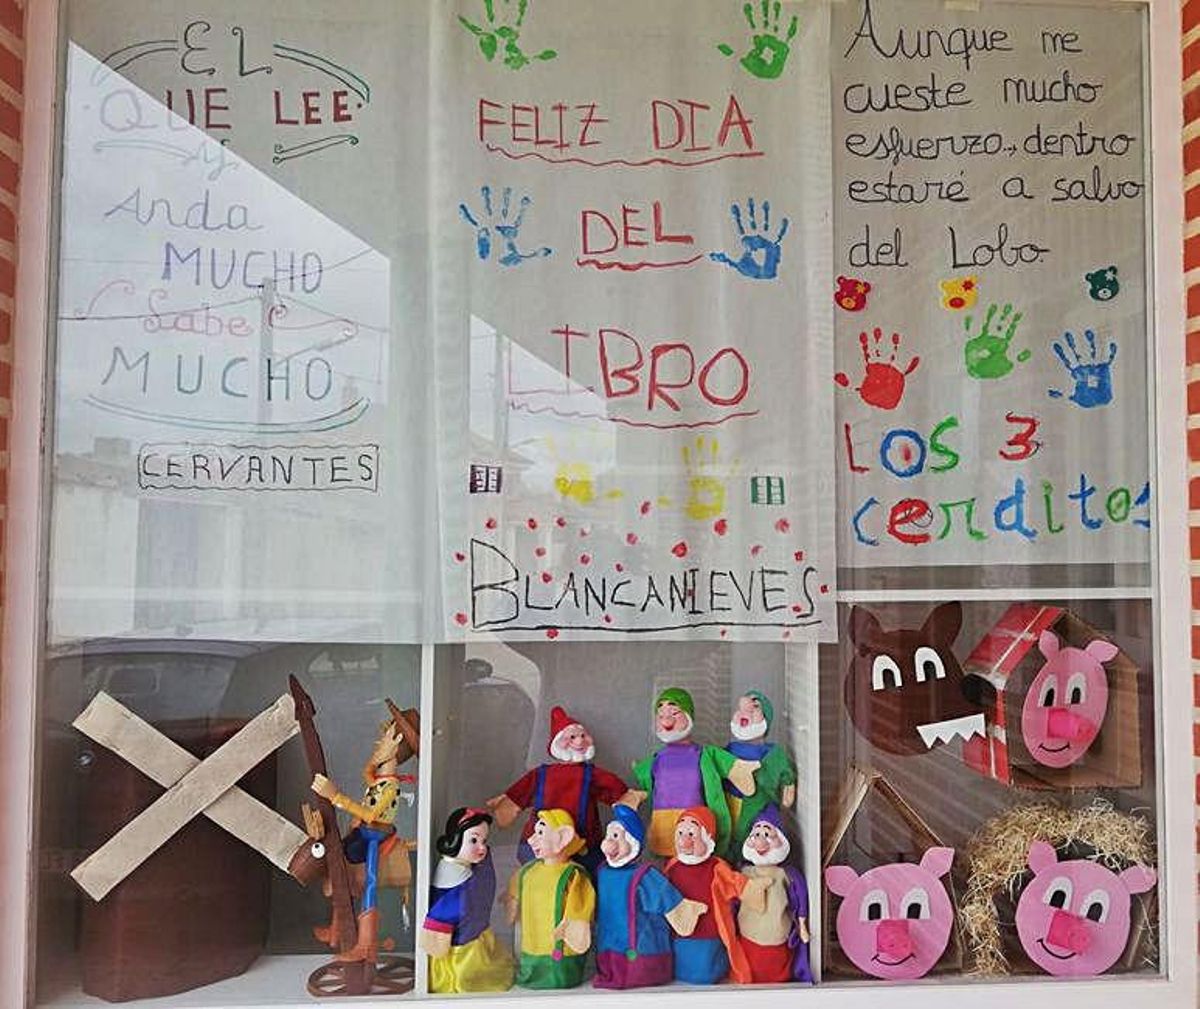 EL
QUE LEE
y
Anda
MUCHO
Sabe
MUCHO
CERVANTES
FELIZ DIA
DEL
LIBRO
BLANCANIEVES
Aunque me
cueste mucho
esfuerzo, dentro
estaré a salvo
del Lobo
LOS 3
cerditos